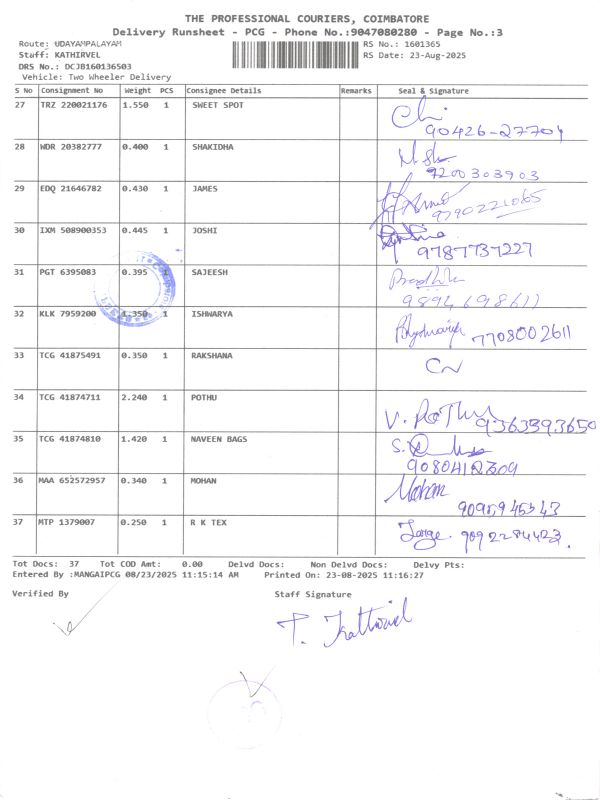 THE PROFESSIONAL COURIERS, COIMBATORE
Delivery Runsheet - PCG - Phone No.:9047080280 - Page No.:3
Route: UDAYAMPALAYAM RS No.: 1601365
Staff: KATHIRVEL RS Date: 23-Aug-2025
DRS No.: DCJB160136503
Vehicle: Two Wheeler Delivery
S No Consignment No Weight PCS Consignee Details Remarks Seal & Signature
27 TRZ 220021176 1.550 1 SWEET SPOT
90426-27704
28 WDR 20382777 0.400 1 SHAKIDHA
9200303903
29 EDQ 21646782 0.430 1 JAMES
9790221065
30 IXM 508900353 0.445 1 JOSHI
9787737227
31 PGT 6395083 0.395 1 SAJEESH
9894698611
32 KLK 7959200 1.350 1 ISHWARYA
7708002611
33 TCG 41875491 0.350 1 RAKSHANA
34 TCG 41874711 2.240 1 POTHU V. PoThu 9363393650
35 TCG 41874810 1.420 1 NAVEEN BAGS
36 MAA 652572957 0.340 1 MOHAN Mohan
37 MTP 1379007 0.250 1 R K TEX 9092284423.
Tot Docs: 37 Tot COD Amt: 0.00 Delvd Docs: Non Delvd Docs: Delvy Pts:
Entered By :MANGAIPCG 08/23/2025 11:15:14 AM Printed On: 23-08-2025 11:16:27
Verified By Staff Signature